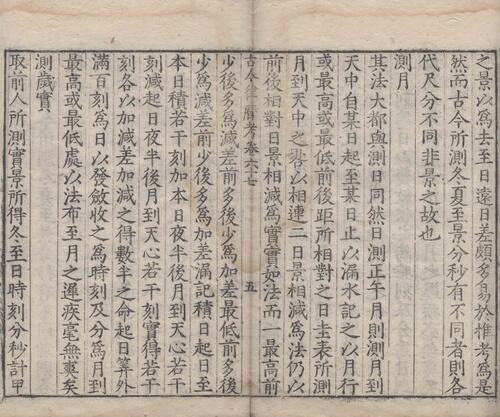 之景以爲去至日遠日差頗多易於推考爲是
然而古今所測冬夏至景分秒有不同者則各
代尺分不同非景之故也
測月
其法大都與測日同然日測正午月則測月到
天中自某日起至某日止以漏水記之以月行
或最高或最低前後距所相對之日圭表所測
月到天中之影以相連二日景相減爲法仍以
前後相對日景相減爲實實如法而一最高前
古今律曆考卷六十七
五
少後多爲減差前多後少爲加差最低前多後
少爲減差前少後多爲加差漏記積日起日至
本日積若干刻加本日夜半後月到天心若干
刻減起日夜半後月到天心若干刻實得若干
刻各以加減差加減之得數半之命起日筭外
滿百刻爲日以發斂收之爲時刻及分爲月到
最高或最低處以法布至月之遲疾毫無爽矣
測歲實
取前人所測實景所得冬至日時刻分秒計甲